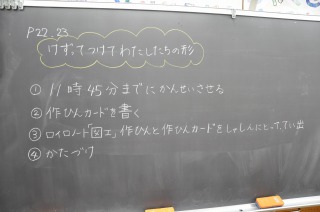 P22、23
けずってつけてわたしたちの形
① 11時45分までにかんせいさせる
② 作ひんカードを書く
③ ロイロノート「図工」作ひんと作ひんカードをしゃしんにとって、てい出
④ かたづけ